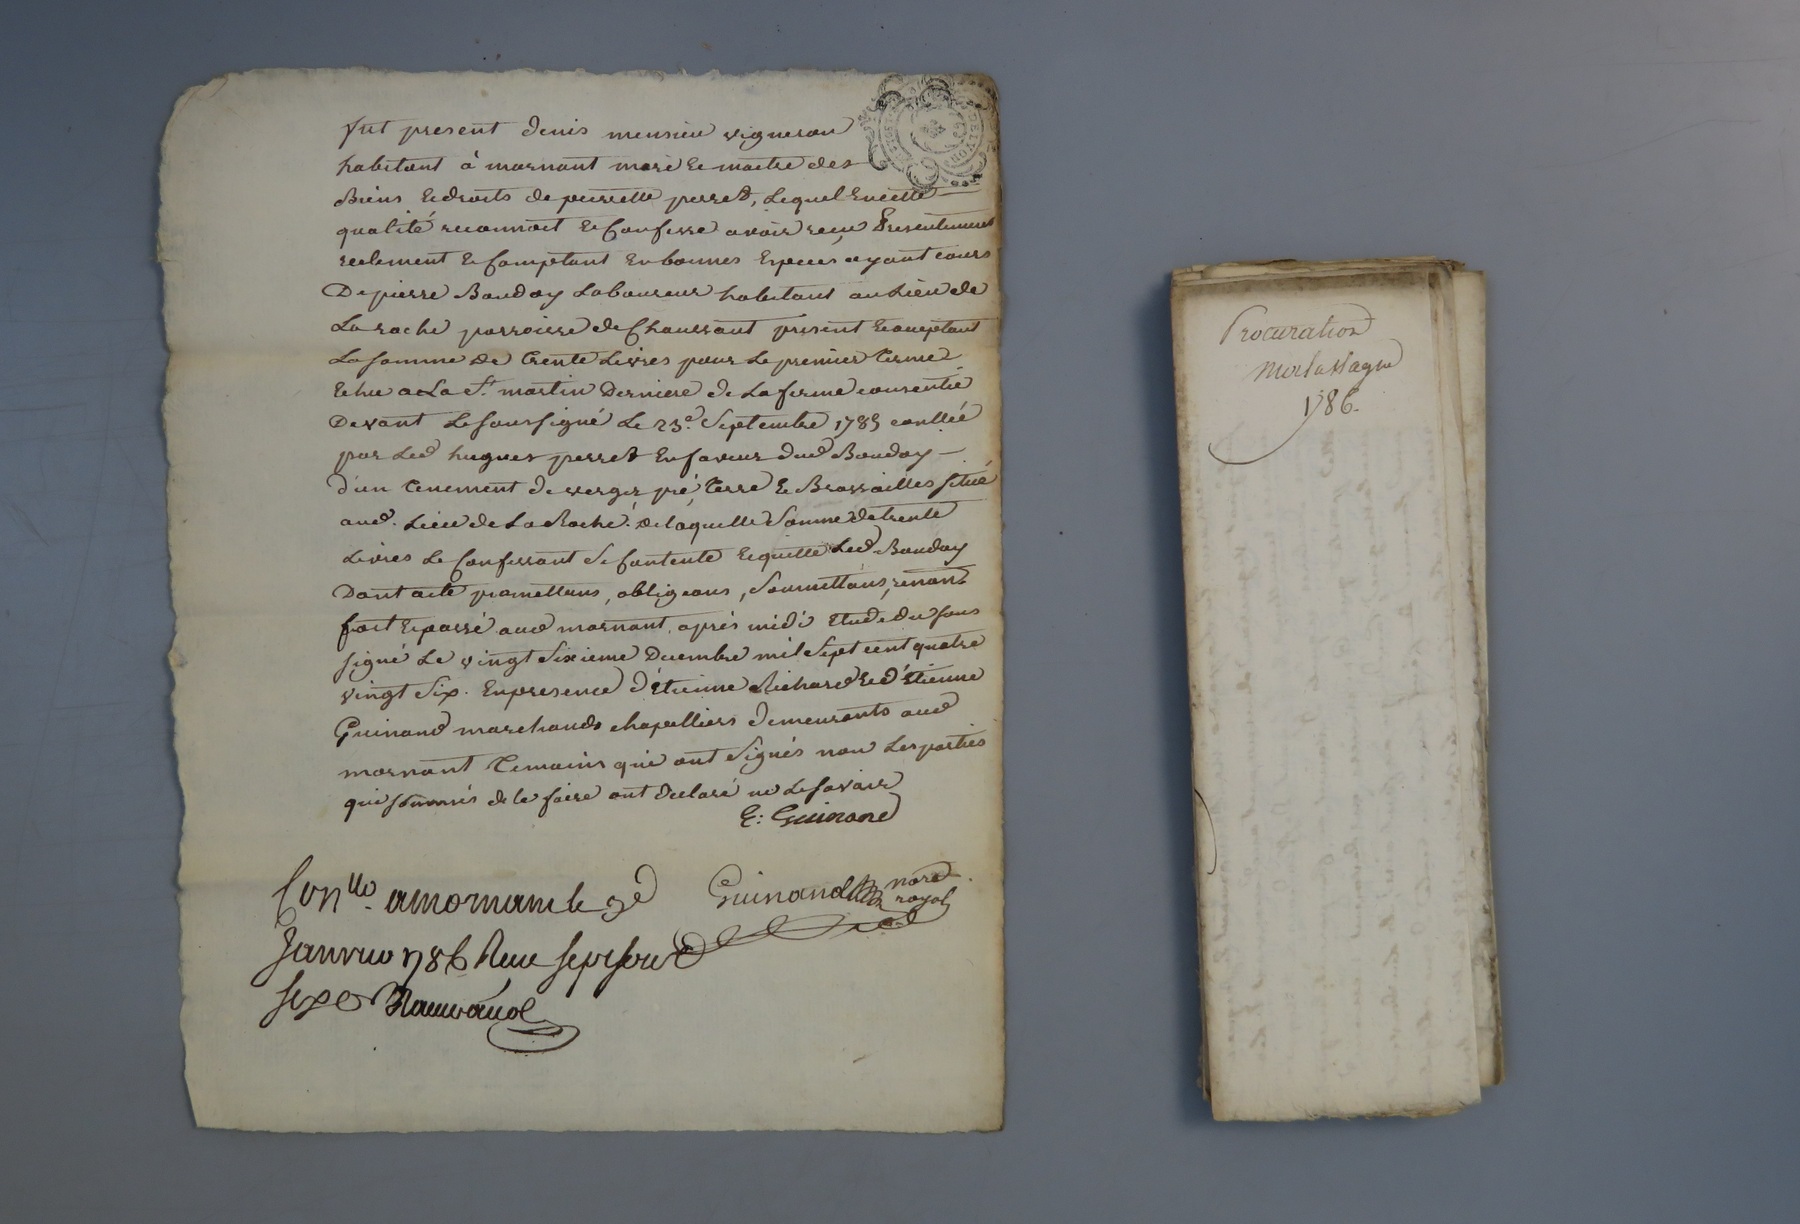 fut present denis mensieu vigneron
habitant à mornant mari & maitre des
Biens & droits de pierrette perret, Lequel En cette
qualité reconnoit & Confesse avoir recu Presentement
reelement & Comptant En bonnes Especes ayant cours
De pierre Bauday Laboureur habitant au Lieu de
La roche parroisse de Chaussant present & acceptant
La somme de trente Livres pour Le premier terme
Echu a La St. martin Derniere de La ferme consentie
Devant Le soussigné Le 23e. Septembre 1785 conllée
par Led hugues perret En faveur dud Bauday
d'un tenement de verger pré, terre & Brossailles situé
aud. Lieu de La Roche. de laquelle somme de trente
Livres Le Confessant se Contente & quitte Led. Bauday
Dont acte promettans, obligeans, soumettans, renonts
fait & passé aud mornant, après midi Etude du sous
signé Le vingt sixieme Decembre mil sept cent quatre
vingt six. En presence d'Etienne Richard & d'Etienne
Guinand marchands chapelliers demeurants aud
mornant temoins qui ont signés non Les parties
qui sommés de le faire ont declaré ne Le savoir
E: Guinand
Guinand nore
royal
Conllé. a mornant le 3e
Janvier 1786 Reçu sept sous
six
Procuration
1786.